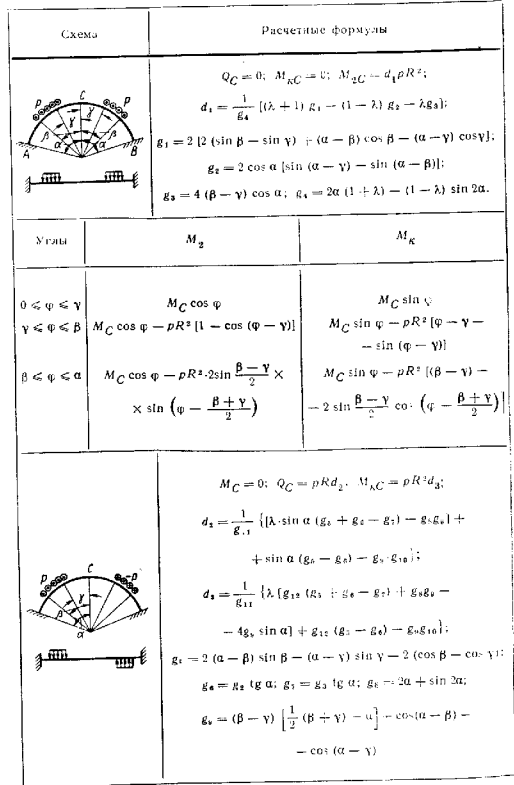 Схема
Расчетные формулы
P C P
γ γ
β β
A α α B
Q_C = 0; M_{кC} = 0; M_{2C} = d₁pR²;
d₁ = 1/g₄ [(λ + 1) g₁ − (1 − λ) g₂ − λg₃];
g₁ = 2 [2 (sin β − sin γ) + (α − β) cos β − (α − γ) cos γ];
g₂ = 2 cos α [sin (α − γ) − sin (α − β)];
g₃ = 4 (β − γ) cos α; g₄ = 2α (1 + λ) − (1 − λ) sin 2α.
Углы
M₂
M_к
0 ⩽ φ ⩽ γ
M_C cos φ
M_C sin φ
γ ⩽ φ ⩽ β
M_C cos φ − pR² [1 − cos (φ − γ)]
M_C sin φ − pR² [φ − γ −
− sin (φ − γ)]
β ⩽ φ ⩽ α
M_C cos φ − pR²·2sin (β − γ)/2 ×
× sin (φ − (β + γ)/2)
M_C sin φ − pR² [(β − γ) −
− 2 sin (β − γ)/2 cos (φ − (β + γ)/2)]
P C −P
γ
β
α
M_C = 0; Q_C = pRd₂, M_{кC} = pR²d₃;
d₂ = 1/g₁₁ {[λ·sin α (g₅ + g₆ − g₇) − g₈g₉] +
+ sin α (g₅ − g₆) − g₉·g₁₀};
d₃ = 1/g₁₁ {λ [g₁₂ (g₅ + g₆ − g₇) + g₈g₉ −
− 4g₉ sin α] + g₁₂ (g₅ − g₆) − g₉g₁₀};
g₅ = 2 (α − β) sin β − (α − γ) sin γ − 2 (cos β − cos γ);
g₆ = g₂ tg α; g₇ = g₃ tg α; g₈ = 2α + sin 2α;
g₉ = (β − γ) [1/2 (β + γ) − α] + cos (α − β) −
− cos (α − γ)